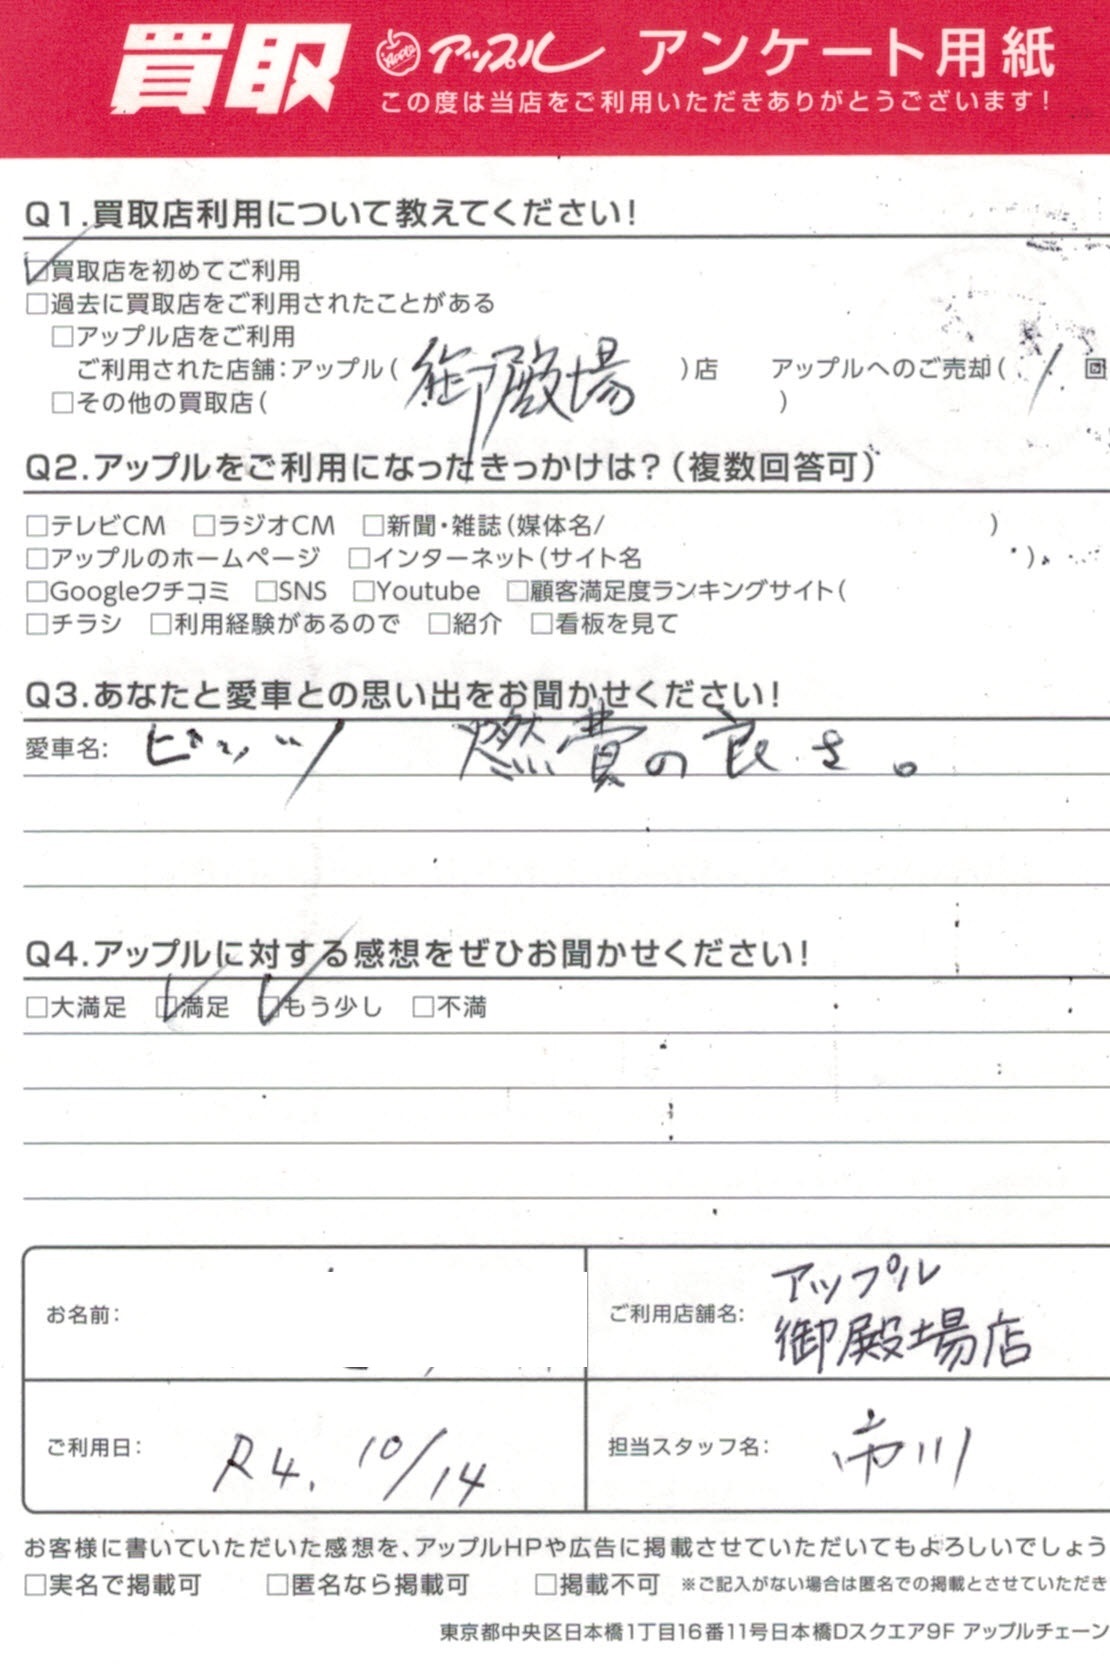 買取 Apple アップル アンケート用紙
この度は当店をご利用いただきありがとうございます!
Q1.買取店利用について教えてください!
☑買取店を初めてご利用
□過去に買取店をご利用されたことがある
□アップル店をご利用
ご利用された店舗:アップル( 御殿場 )店 アップルへのご売却( 1 回
□その他の買取店( )
Q2.アップルをご利用になったきっかけは?(複数回答可)
□テレビCM □ラジオCM □新聞・雑誌(媒体名/ )
□アップルのホームページ □インターネット(サイト名 )
□Googleクチコミ □SNS □Youtube □顧客満足度ランキングサイト(
□チラシ □利用経験があるので □紹介 □看板を見て
Q3.あなたと愛車との思い出をお聞かせください!
愛車名: ビッツ 燃費の良さ。
Q4.アップルに対する感想をぜひお聞かせください!
□大満足 ☑満足 ☑もう少し □不満
お名前:
ご利用店舗名: アップル
御殿場店
ご利用日: R4. 10/14
担当スタッフ名: 市川
お客様に書いていただいた感想を、アップルHPや広告に掲載させていただいてもよろしいでしょう
□実名で掲載可 □匿名なら掲載可 □掲載不可 ※ご記入がない場合は匿名での掲載とさせていただき
東京都中央区日本橋1丁目16番11号日本橋Dスクエア9F アップルチェーン